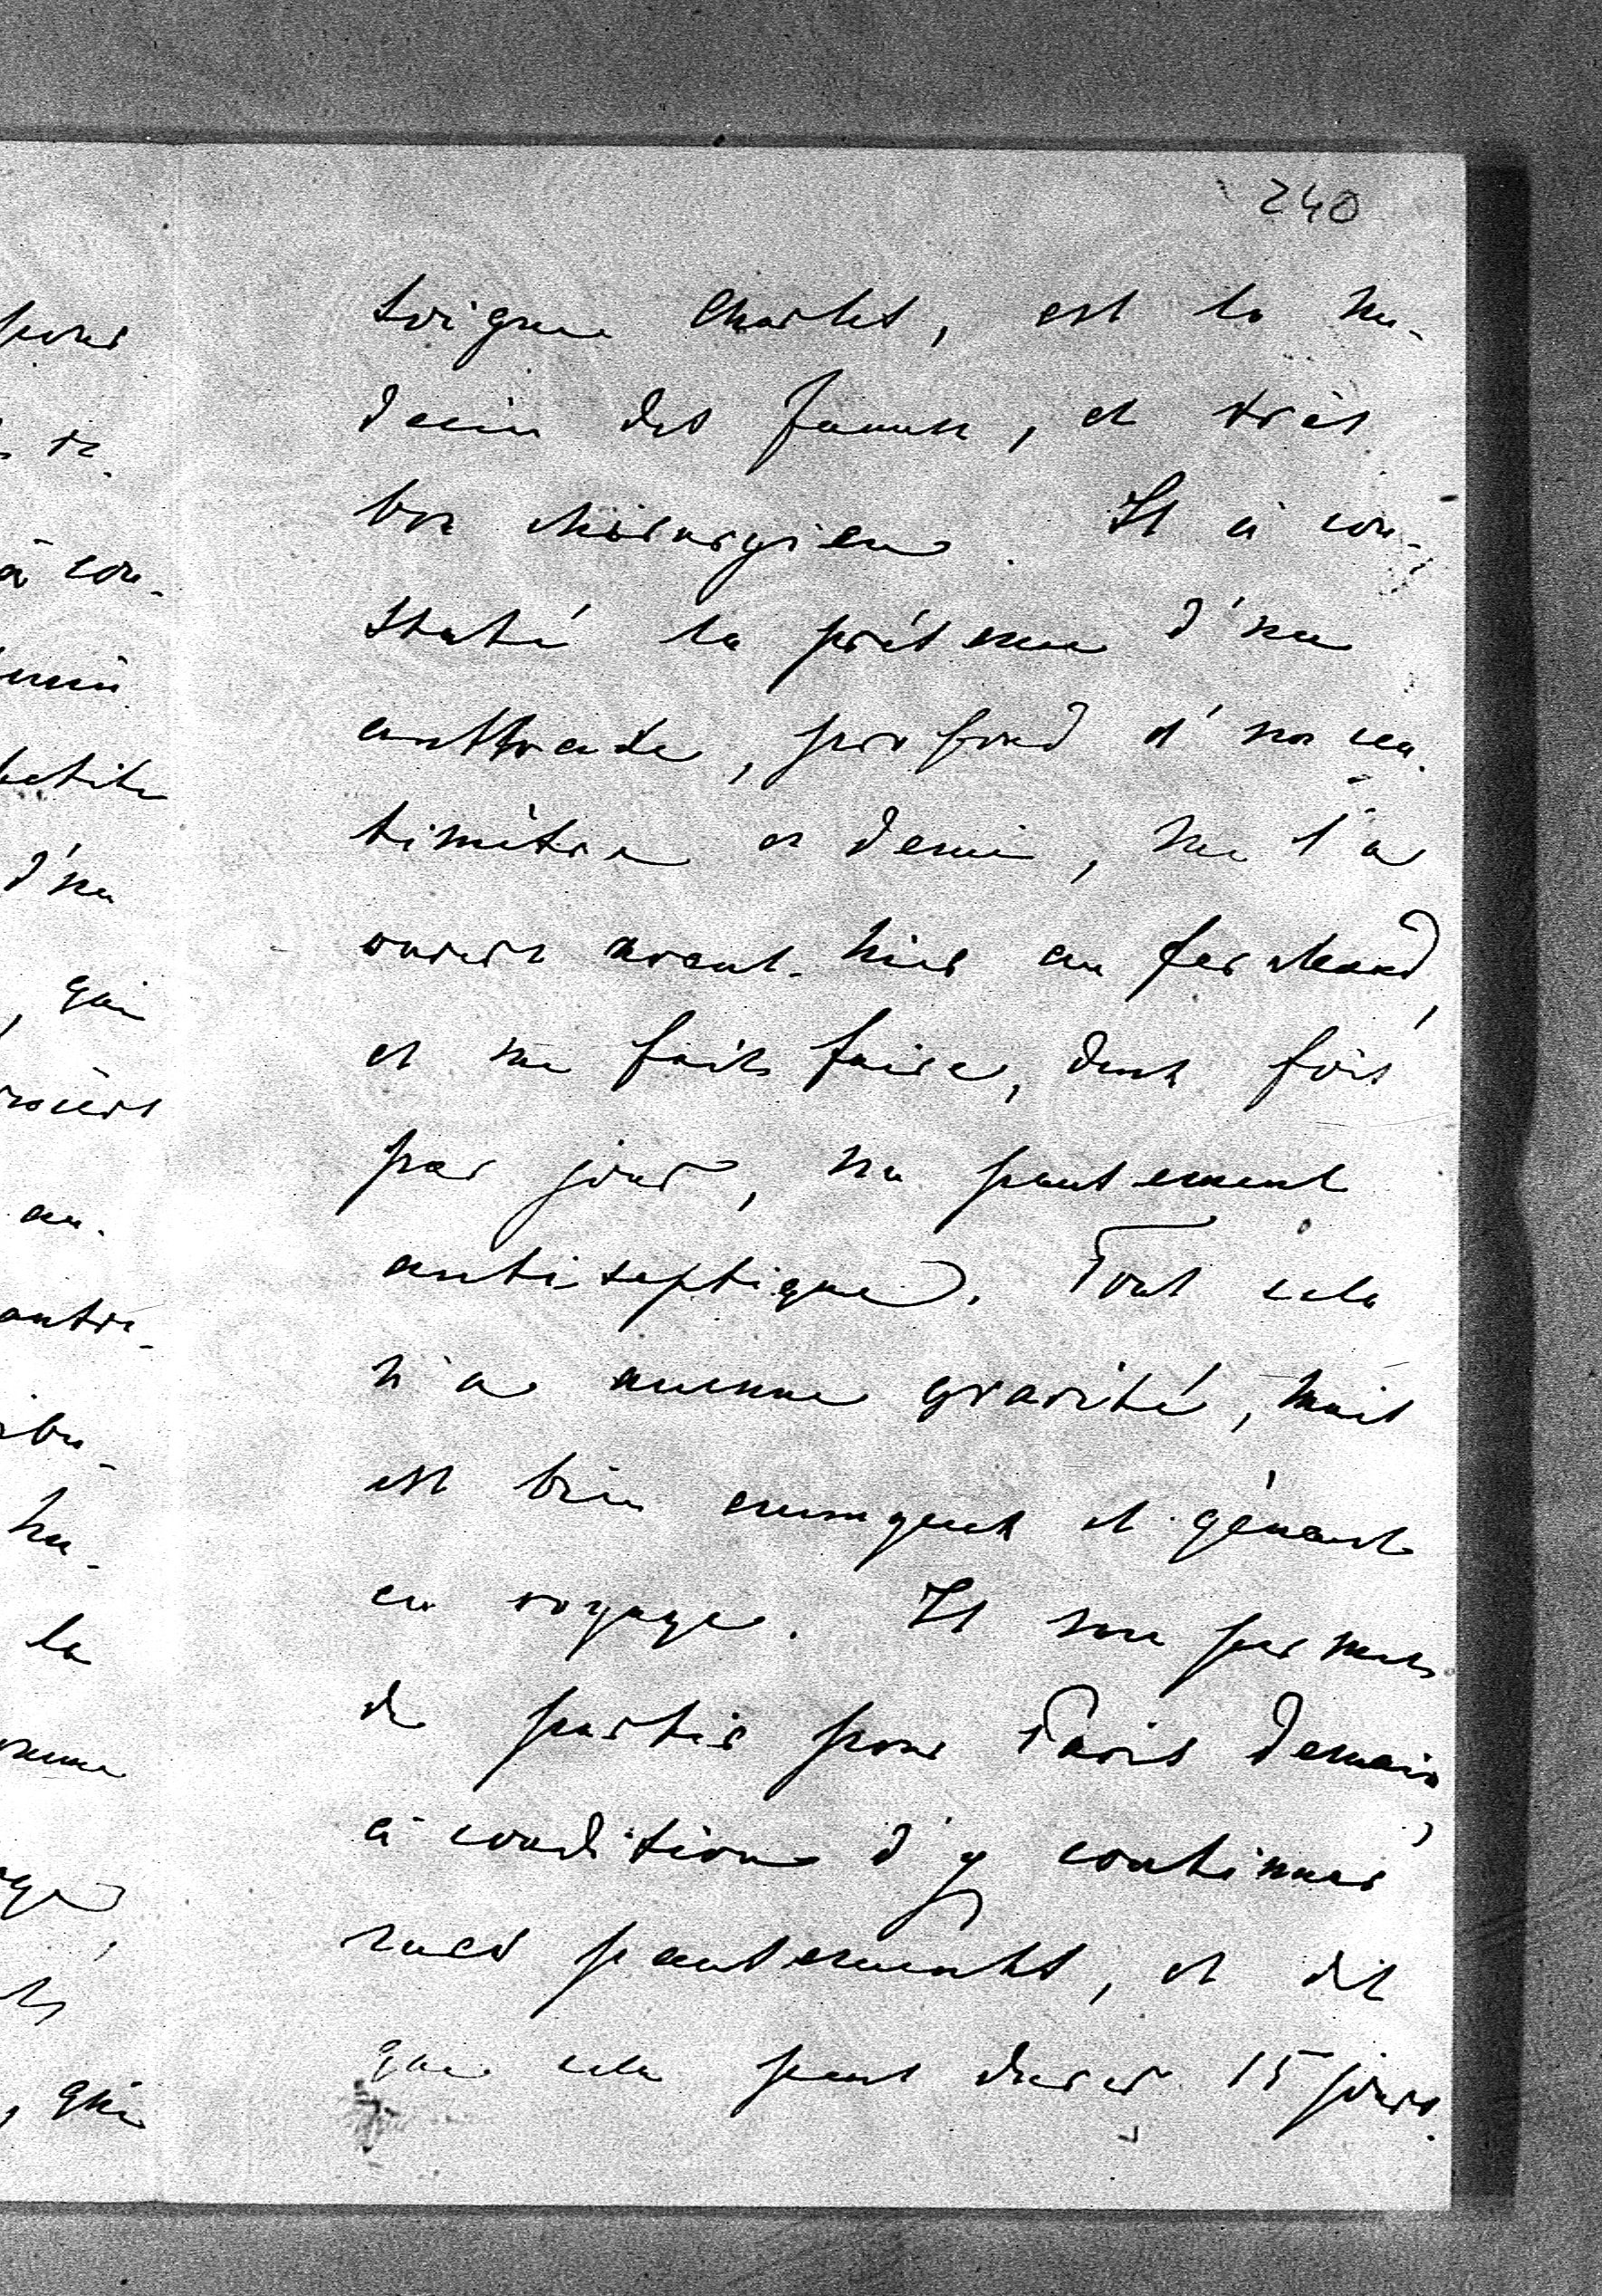 240
soigne Charles, est le mé-
decin des femmes, et très
bon chirurgien. Il a con-
staté la présence d'un
anthrax, profond d'un cen-
timètre et demi, me l'a
ouvert avant-hier au fer chaud,
et me fait faire, deux fois
par jour, un pansement
antiseptique. Tout cela
n'a aucune gravité, mais
est bien ennuyeux et gênant
en voyage. Il me permet
de partir pour Paris demain,
à condition d'y continuer
pansements, et dit
que cela peut durer 15 jours.